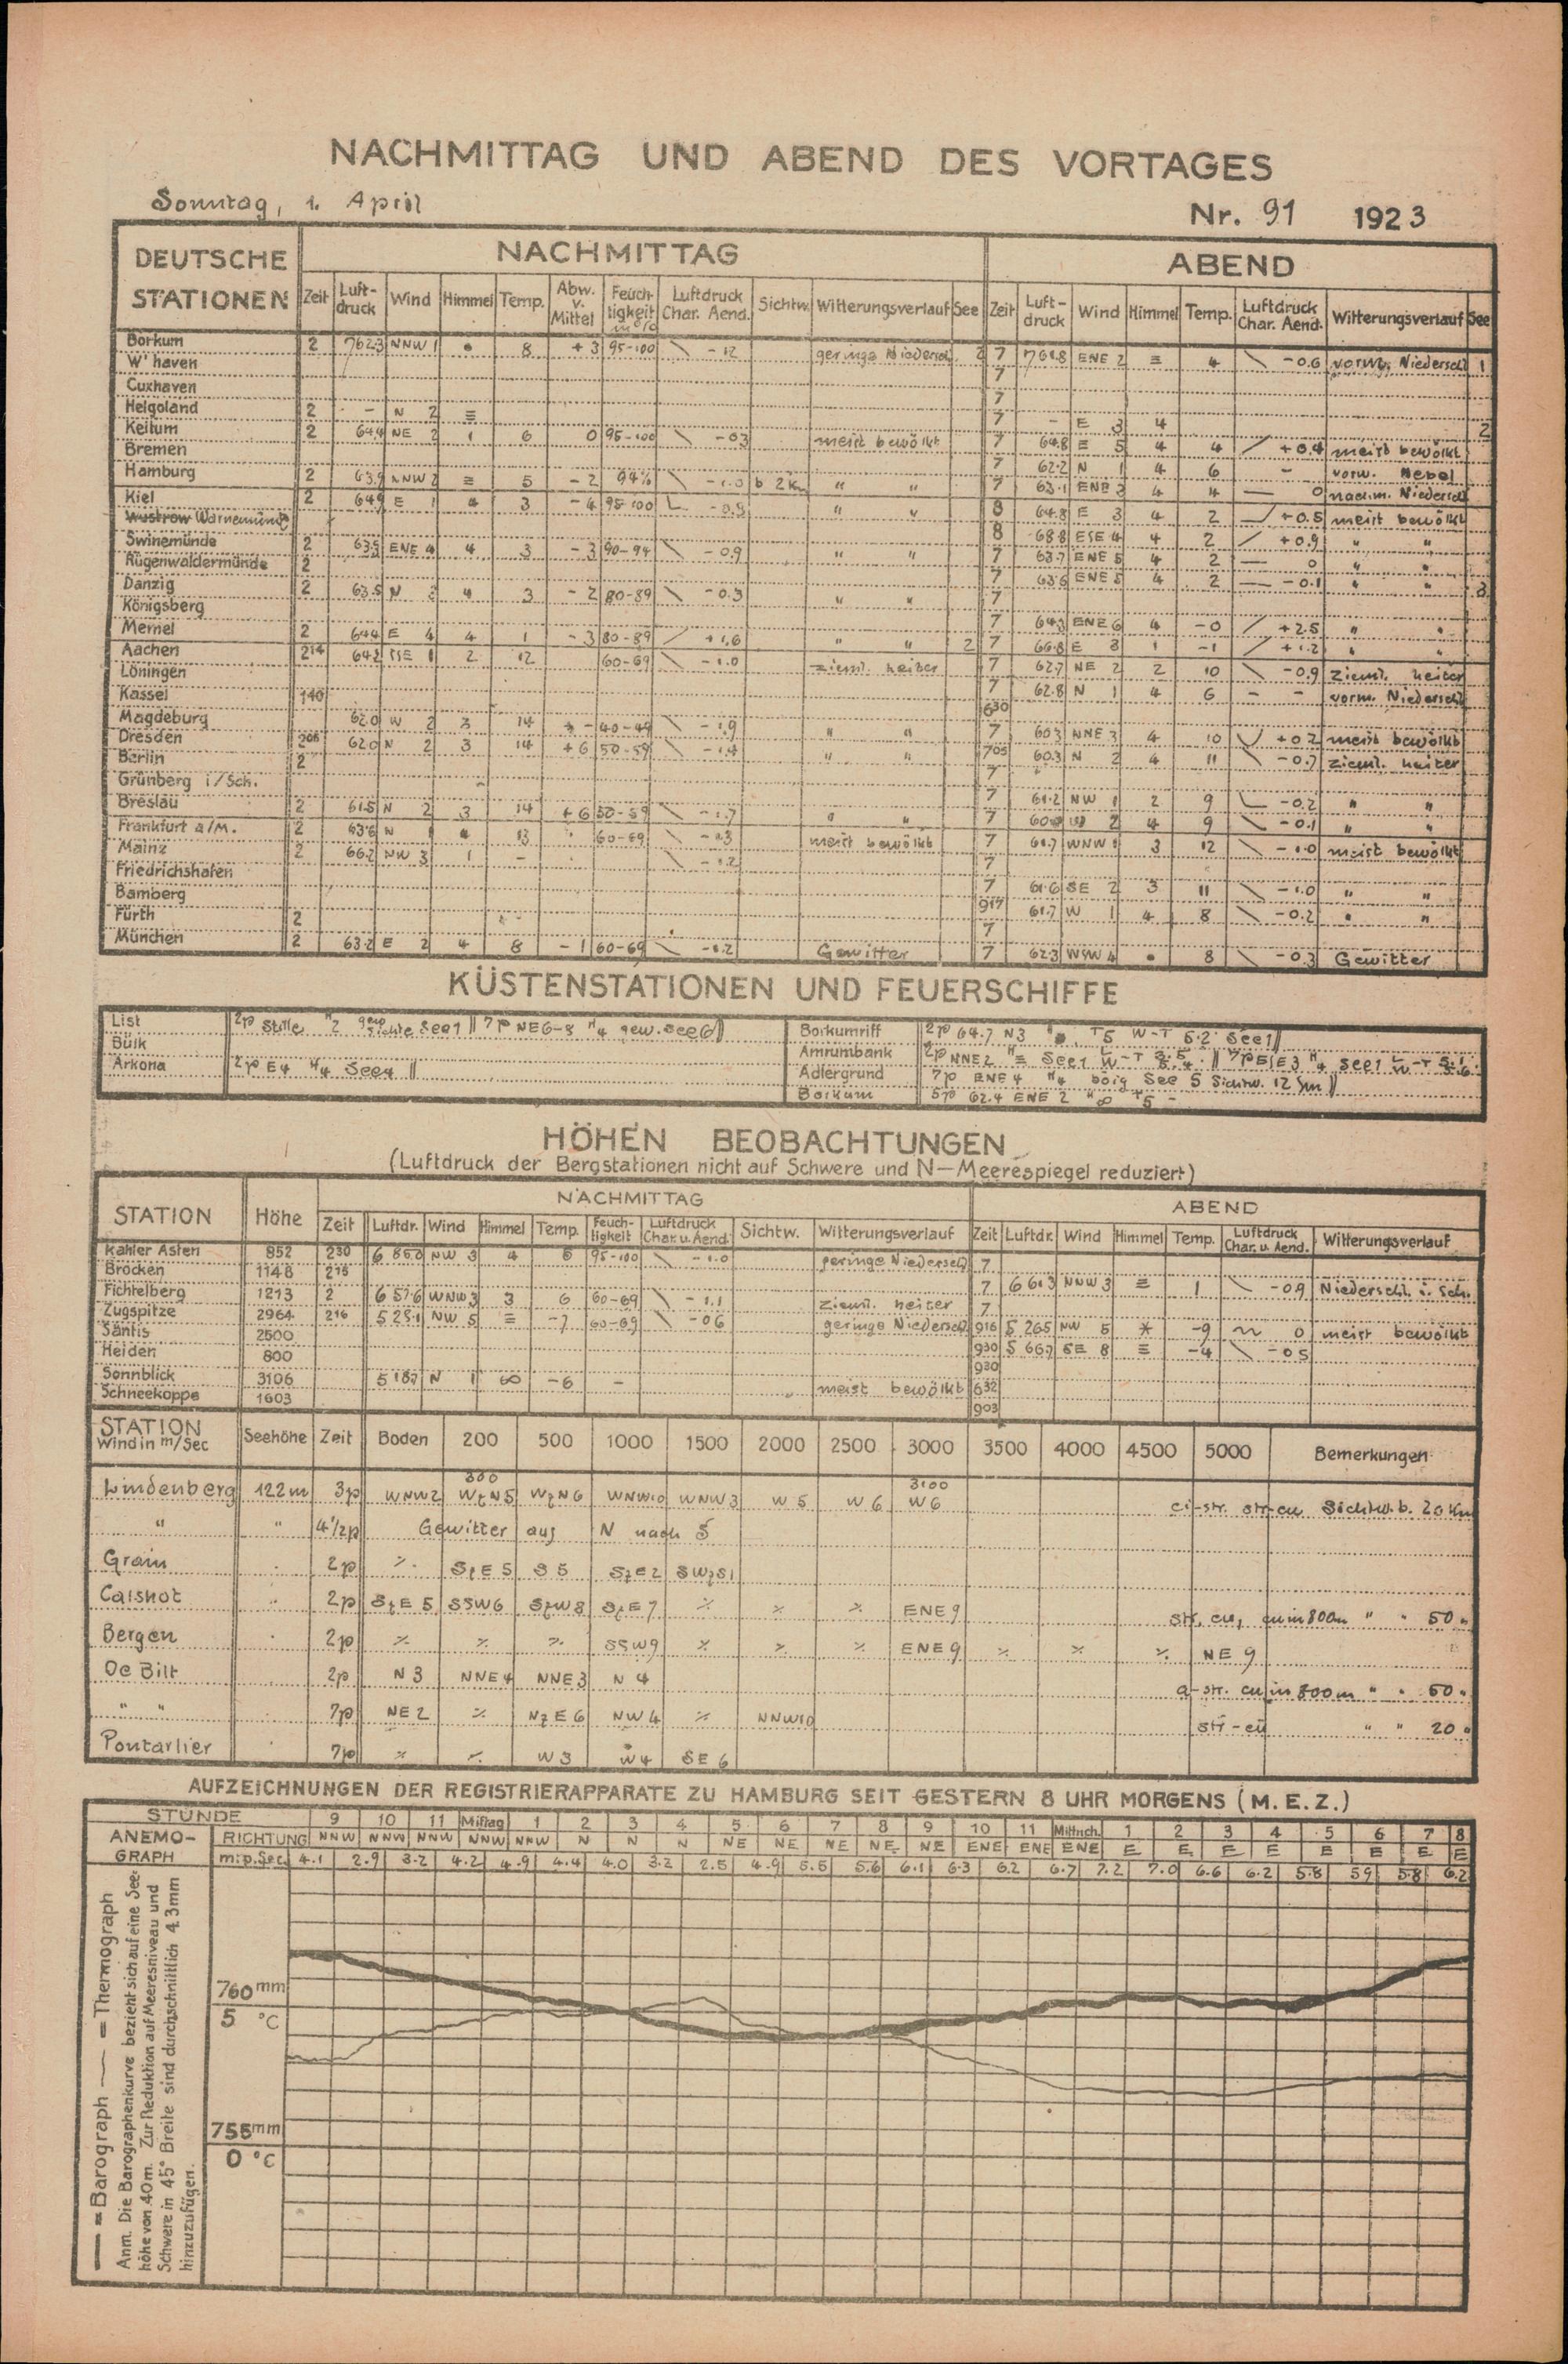 NACHMITTAG UND ABEND DES VORTAGES
Sonntag, 1. April
Nr. 91 1923
DEUTSCHE STATIONEN
NACHMITTAG
ABEND
Zeit Luft-druck Wind Himmel Temp. Abw. v. Mittel Feuch-tigkeit in % Luftdruck Char. Aend. Sichtw. Witterungsverlauf See Zeit Luft-druck Wind Himmel Temp. Luftdruck Char. Aend. Witterungsverlauf See
Borkum 2 762.3 NNW 1 • 8 +3 95-100 \ -1.2 geringe Niedersch. 2 7 761.8 ENE 2 ≡ 4 \ -0.6 vorm. Niedersch 1
W'haven 7
Cuxhaven 7
Helgoland 2 - N 2 ≡ 7 - E 3 4 2
Keitum 2 64.4 NE 2 1 6 0 95-100 \ -0.3 meist bewölkt 7 64.8 E 5 4 4 / +0.4 meist bewölkt
Bremen 7 62.2 N 1 4 6 - vorw. Nebel
Hamburg 2 63.9 NNW 2 ≡ 5 -2 94% \ -1.0 b 2 Km " " 7 63.1 ENE 3 4 4 — 0 nachm. Niedersch
Kiel 2 64.9 E 1 4 3 -4 95-100 " " 8 64.8 E 3 4 2 +0.5 meist bewölkt
Wustrow Warnemünde 8 68.8 ESE 4 4 2 / +0.9 " "
Swinemünde 2 63.5 ENE 4 4 3 -3 90-94 \ -0.9 " " 7 63.7 ENE 5 4 2 — 0 " "
Rügenwaldermünde 2 7 63.6 ENE 5 4 2 — -0.1 " " 3
Danzig 2 63.5 N 4 3 -2 80-89 \ -0.3 " " 7
Königsberg 7 64.3 ENE 6 4 -0 / +2.5 " "
Memel 2 64.4 E 4 4 1 -3 80-89 / +1.6 " " 2 7 66.8 E 3 1 -1 / +1.2 " "
Aachen 2¹⁴ 64.2 SSE 1 2 12 60-69 \ -1.0 zieml. heiter 7 62.7 NE 2 2 10 \ -0.9 zieml. heiter
Löningen 7 62.8 N 1 4 6 - - vorm. Niedersch
Kassel 1⁴⁰ 6³⁰
Magdeburg 62.0 W 2 3 14 40-49 \ -1.9 " " 7 60.3 NNE 3 4 10 +0.2 meist bewölkt
Dresden 2⁰⁵ 62.0 N 2 3 14 +6 50-59 \ -1.4 " " 7⁰⁵ 60.3 N 2 4 11 \ -0.7 zieml. heiter
Berlin 2 7
Grünberg i/Sch. 7 61.2 NW 1 2 9 -0.2 " "
Breslau 2 61.5 N 2 3 14 +6 50-59 \ -1.7 " " 7 2 4 9 \ -0.1 " "
Frankfurt a/M. 2 63.6 N 1 4 13 60-69 \ meist bewölkt 7 61.7 WNW 1 3 12 \ -1.0 meist bewölkt
Mainz 2 66.2 NW 3 1 - \ -1.2 7
Friedrichshafen 7 61.6 SE 2 3 11 \ -1.0 " "
Bamberg 9¹⁷ 61.7 W 1 4 8 \ -0.2 " "
Fürth 2 7
München 2 63.2 E 2 4 8 -1 60-69 \ -1.2 Gewitter 7 62.3 WSW 4 • 8 \ -0.3 Gewitter
KÜSTENSTATIONEN UND FEUERSCHIFFE
List 2p Stille H2 See 1 || 7p NE 6-8 H4 gew. See 6 ||
Bülk
Arkona 2p E4 H4 See 4 ||
Borkumriff 2p 64.7 N3 T5 W-T 5.2 See 1 ||
Amrumbank 2p NNE2 H≡ See 1 || 7p ESE 3 H4 See 1
Adlergrund 7p ENE 4 H4 böig See 5 Sichtw. 12 Sm ||
Borkum 5p 62.4 ENE 2 H∞ T5 -
HÖHEN BEOBACHTUNGEN
(Luftdruck der Bergstationen nicht auf Schwere und N-Meerespiegel reduziert)
STATION Höhe
NACHMITTAG
ABEND
Zeit Luftdr. Wind Himmel Temp. Feuch-tigkeit Luftdruck Char. u. Aend. Sichtw. Witterungsverlauf Zeit Luftdr. Wind Himmel Temp. Luftdruck Char. u. Aend. Witterungsverlauf
Kahler Asten 852 2³⁰ 6 85.0 NW 3 4 6 95-100 \ -1.0 geringe Niedersch 7
Brocken 1148 2¹⁵ 7 6 61.3 NNW 3 ≡ 1 \ -0.9 Niederschl. i. Sch.
Fichtelberg 1213 2 6 57.6 WNW 3 3 6 60-69 \ -1.1 zieml. heiter 7
Zugspitze 2964 2¹⁶ 5 25.1 NW 5 ≡ -7 60-69 \ -0.6 geringe Niedersch 9¹⁶ 5 26.5 NW 5 * -9 ~ 0 meist bewölkt
Säntis 2500 9³⁰ 5 66.7 SE 8 ≡ -4 \ -0.5
Heiden 800 9³⁰
Sonnblick 3106 5 18.7 N 1 ∞ -6 - meist bewölkt 6³²
Schneekoppe 1603 9⁰³
STATION Wind in m/Sec Seehöhe Zeit Boden 200 500 1000 1500 2000 2500 3000 3500 4000 4500 5000 Bemerkungen
300 3100
Lindenberg 122 m 3p WNW2 WzN5 WzN6 WNW10 WNW3 W5 W6 W6 ci-str. str-cu Sichtw. b. 20 Km
" " 4½p Gewitter aus N nach S
Grain 2p ⁒ SzE5 S5 SzE2 SWzS1
Calshot 2p SzE5 SSW6 SzW8 SzE7 ⁒ ⁒ ⁒ ENE9 str. cu, cu in 800m " " 50 "
Bergen 2p ⁒ ⁒ ⁒ SSW9 ⁒ ⁒ ⁒ ENE9 ⁒ ⁒ ⁒ NE9
De Bilt 2p N3 NNE4 NNE3 N4 a-str. cu in 800m " " 50 "
" " 7p NE2 ⁒ NzE6 NW4 ⁒ NNW10 str-cu " " 20 "
Pontarlier 7p ⁒ ⁒ W3 W4 SE6
AUFZEICHNUNGEN DER REGISTRIERAPPARATE ZU HAMBURG SEIT GESTERN 8 UHR MORGENS (M.E.Z.)
STUNDE 9 10 11 Mittag 1 2 3 4 5 6 7 8 9 10 11 Mittnch. 1 2 3 4 5 6 7 8
ANEMO-GRAPH RICHTUNG NNW NNW NNW NNW NNW N N N NE NE NE NE NE ENE ENE ENE E E E E E E E E
m.p.Sec. 4.1 2.9 3.2 4.2 4.9 4.4 4.0 3.2 2.5 4.9 5.5 5.6 6.1 6.3 6.2 6.7 7.2 7.0 6.6 6.2 5.8 5.9 5.8 6.2
760 mm
5 °C
755 mm
0 °C
— = Barograph — = Thermograph
Anm. Die Barographenkurve bezieht sich auf eine See-
höhe von 40 m. Zur Reduktion auf Meeresniveau und
Schwere in 45° Breite sind durchschnittlich 4.3 mm
hinzuzufügen.